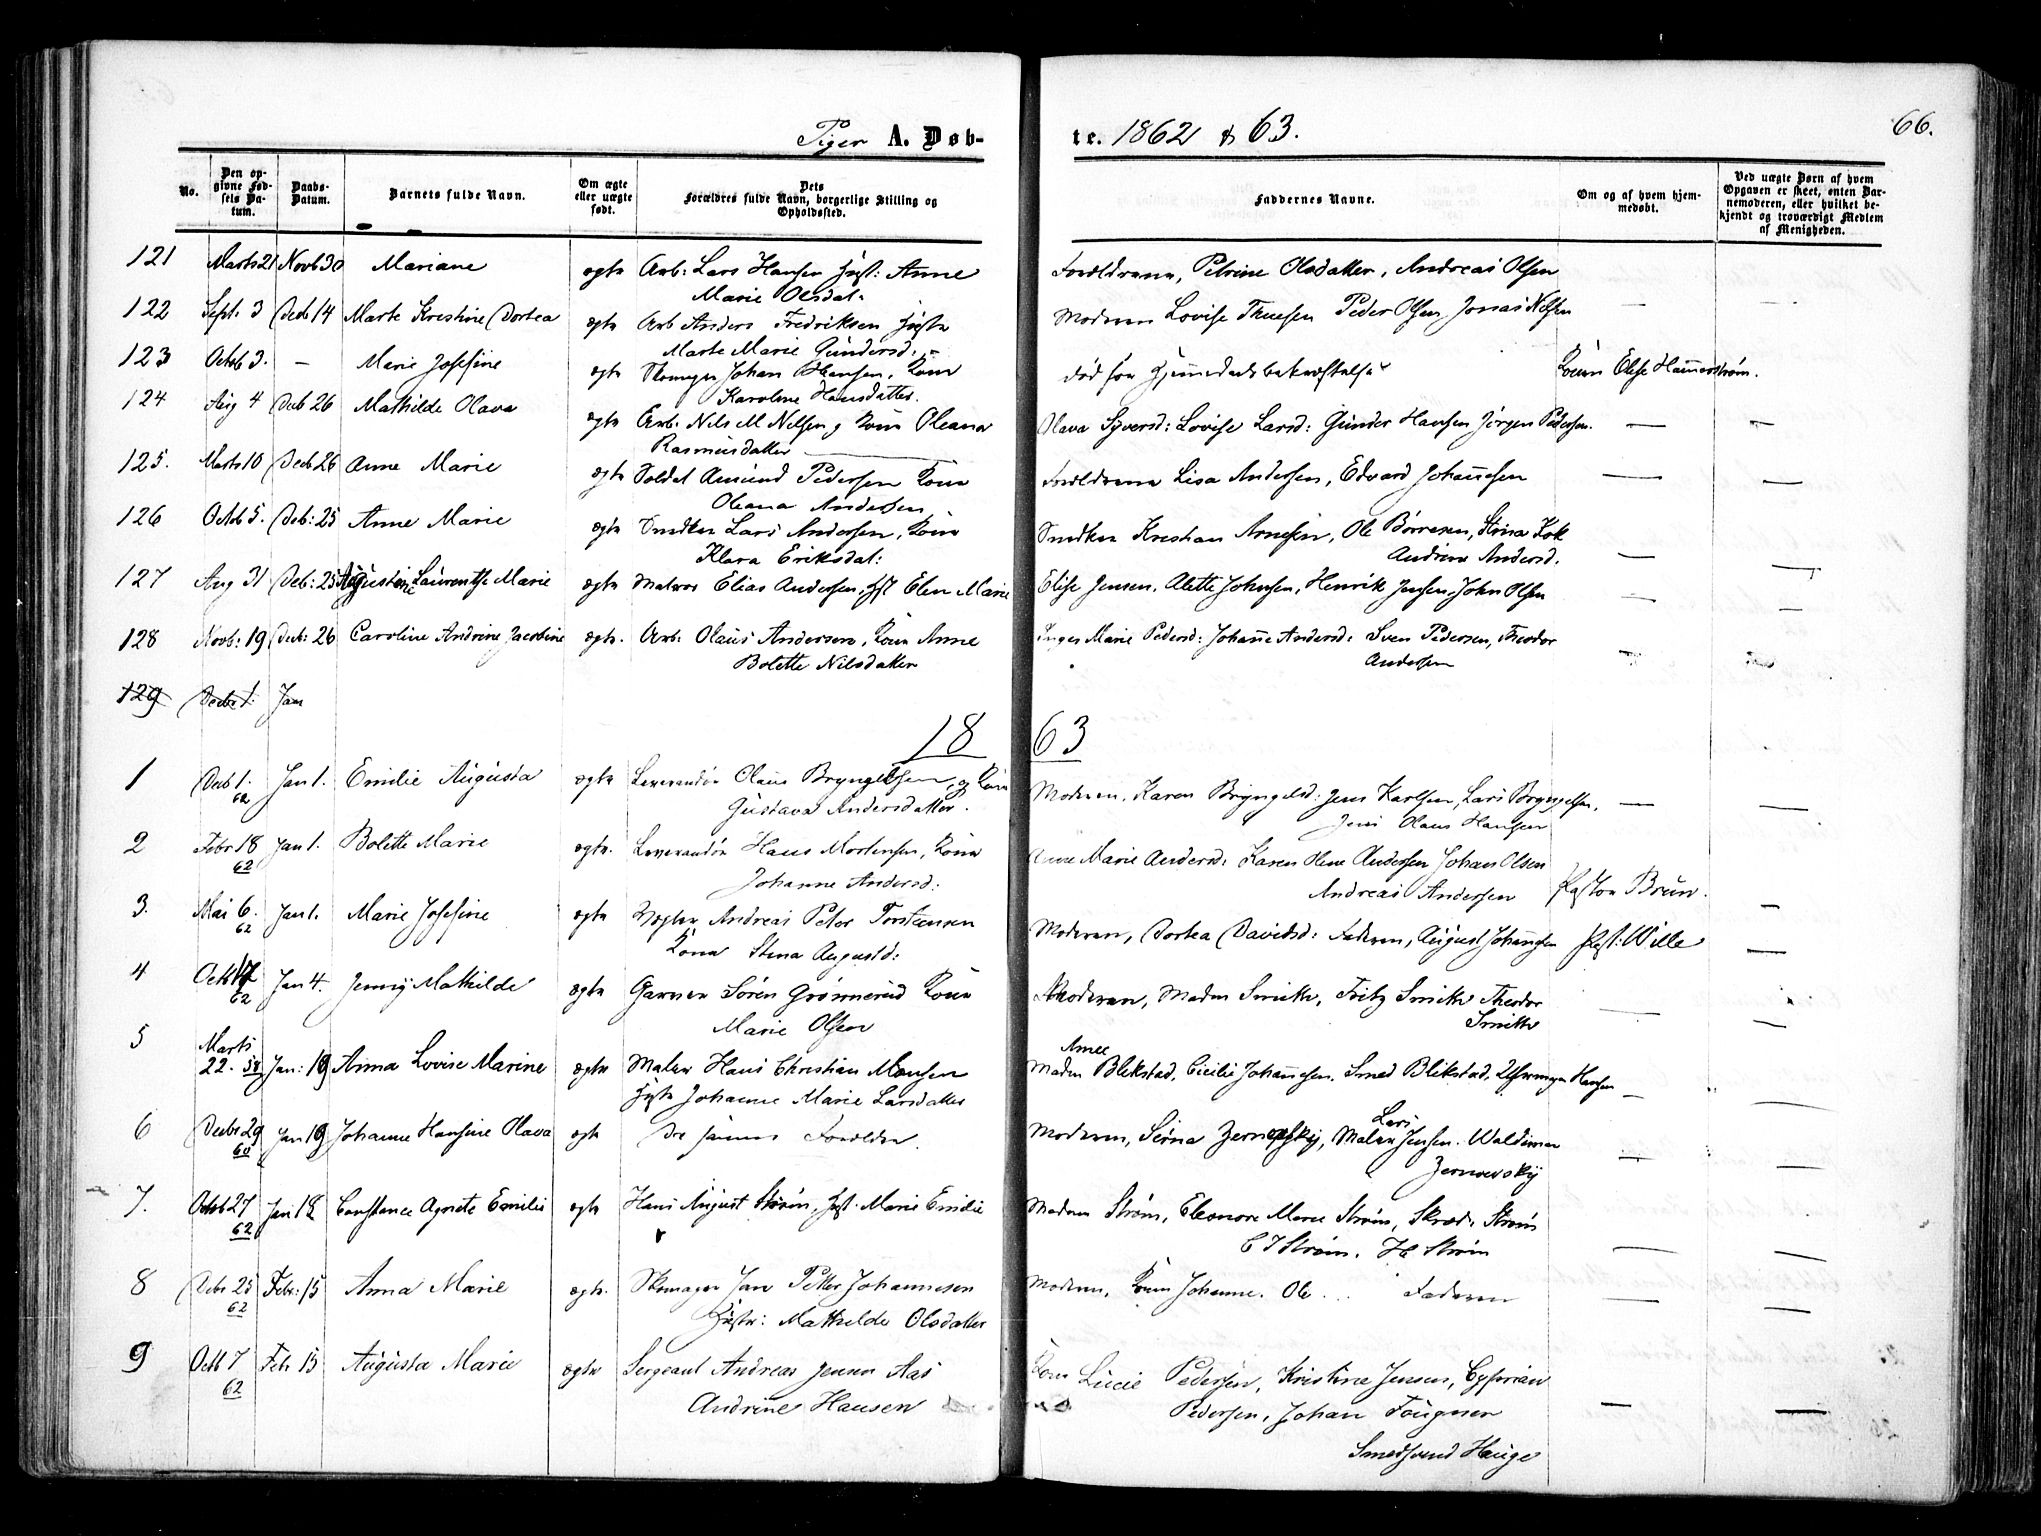 Piger A. Døb-
te. 1862 & 63.
66.
No.
Den op-
givne Fød-
sels Da-
tum.
Daabs-
Datum.
Barnets fulde Navn.
Om ægte
eller uægte
født.
Dets
Forældres fulde Navn, borgerlige Stilling og
Opholdssted.
Faddernes Navne.
Om og af hvem hjem-
medøbt.
Ved uægte Børn af hvem
Opgaven er skeet, enten Bar-
nemoderen, eller hvilket be-
kjendt og troværdigt Medlem
af Menigheden.
121 Marts 21 Novb 30 Mariane ægte Arb: Lars Hansen Hust: Anne Forældrene, Petrine Olsdatter, Andreas Olsen
Marie Olsdat:
122 Sept. 3 Decb 14 Marte Kristine Dortea ægte Arb Anders Fredriksen Hustr Moderen Lovise Thuesen Peder Olsen, Jonas Nilsen —
Marte Marie Gundersd.
123 Octob 3. — Marie Josefine ægte Skomager Johan Hansen, Kone død før Hjemmedaabsbekræftelse Konen Elise Hammerstrøm.
Karoline Hansdatter.
124 Aug 4 Decb 26 Mathilde Olava ægte Arb. Nils M Nilsen og Kone Oleana Olava Syversd: Lovise Larsd: Gunder Hansen Jørgen Pedersen. — —
Rasmusdatter
125. Marts 10 Decb 26 Anne Marie ægte Soldat Amund Pedersen Kone Forældrene Lisa Andersen, Edvard Johannesen — —
Oleana Andersen
126 Octob 5. Deb: 25 Anne Marie ægte Snedker Lars Andersen, Kone Snedker Kristian Arnesen, Ole Børresen, Stina Kok
Klara Eriksdat: Andrine Andersd. —
127 Aug 31 Deb: 25 Augustine Laurentse Marie ægte Matros Elias Andersen, Hst Elen Marie Elise Jensen, Alette Johnsen, Henrik Jensen, John Olsen — —
128 Novb: 19 Decb: 26 Caroline Andrine Jacobine ægte. Arb: Olaus Andersen, Kone Anne Inger Marie Pedersd: Johanne Andersd: Sven Pedersen, Theodor
Bolette Nilsdatter Andersen
129 Decbr 1. Jan
18 63
1 Decb 1. Jan 1. Emilie Augusta ægte Leverandør Olaus Bryngelsen, og Kone Moderen, Karen Bryngelsd: Jens Karlsen, Lars Bryngelsen, — —
62 Gustava Andersdatter. Jens Olaus Hansen
2 Febr 18 Jan 1. Bolette Marie ægte. Leverandør Hans Mortensen, Kone Anne Marie Andersd: Karen Olene Andersen Johan Olsen
62 Johanne Andersd: Andreas Andersen Pastor Brun.
3. Mai 6. Jan 1. Marie Josefine ægte Andreas Peter Torstensen Moderen, Dortea Davidsd: Faderen, August Johannesen Past: Wille —
62 Kone Stina Augustd:
4 Octb 17 Jan 4. Jenny Mathilde ægte Garver Søren Grønnerud Kone Moderen, Madm Smith, Fritz Smith Theodor
62 Marie Olsen Smith — —
5 Marts Anne
22. 58 Jan: 19 Anna Lovise Marine ægte Maler Hans Christian Monsen Madm Blekstad, Cicilie Johannesen, Smed Blikstad, Hansen —
Hustr Johanne Marie Larsdatter
6 Decbr 29 Jan 19 Johanne Hansine Olava ægte De samme Forældre. Moderen, Serna Zernovsky, Maler Lars Jensen. Waldemar
60 Zernovsky — —
7. Octob 27 Jan 18 Constance Agnete Emilie ægte Hans August Strøm, Hust. Marie Emilie Madm Strøm, Eleonore Marie Strøm, Skræd. Strøm
62 C J Strøm. H Strøm — —
8 Decbr 25 Febr: 15 Anna Marie ægte. Skomager Jan Petter Johannesen Moderen, Konen Johanne. Ole ... Faderen — —
62 Hustr: Mathilde Olsdatter
9 Octb 7 Febr 15 Augusta Marie ægte Sergeant Andreas Jensen Aas Kone Lucie Pedersen, Kristine Jensen, Cyprian
62 Andrine Hansen Pedersen, Johan Fougner — —
Smedsvend Hauge